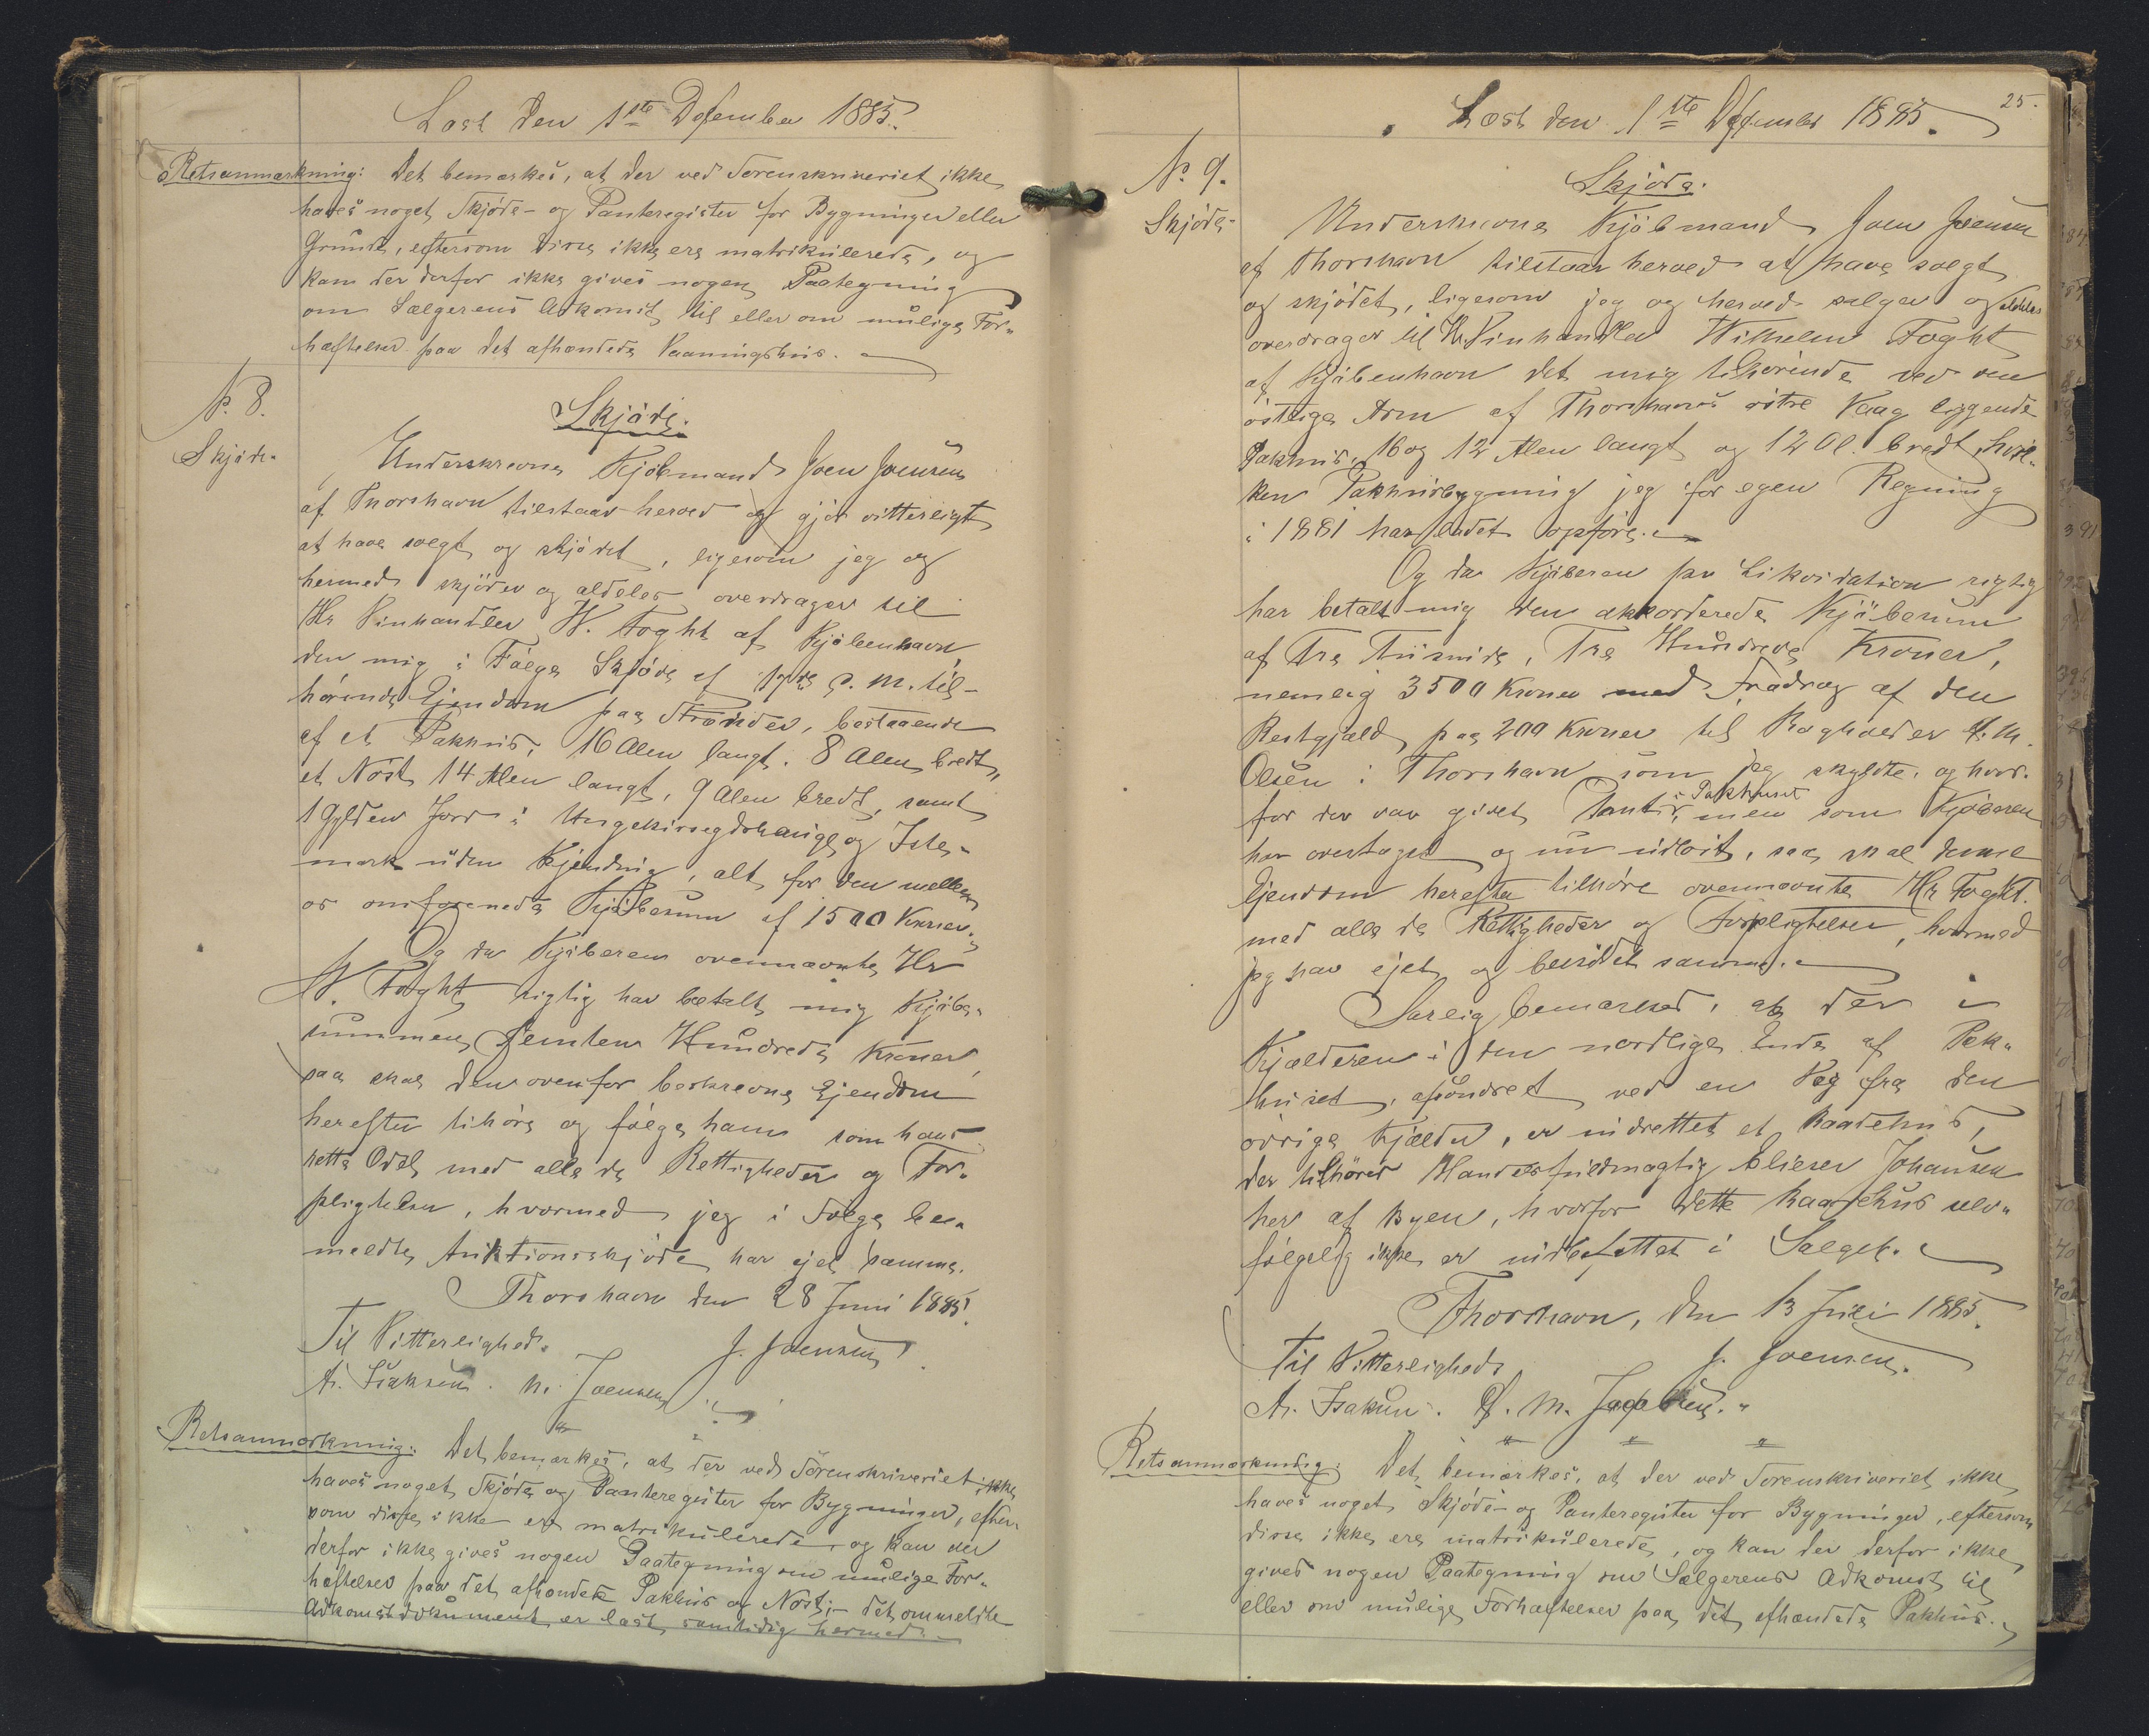 Læst den 1ste December 1885.
Retsanmærkning: Det bemærkes, at der ved Sorenskriveriet ikke
haves noget Skjøde- og Panteregister for Bygninger eller
Grunde, eftersom disse ikke ere matrikulerede, og
kan der derfor ikke gives nogen Paategning
om Sælgerens Adkomst til eller om mulige For-
hæftelser paa det afhændede Vaaningshus.
No. 8.
Skjøde.
Skjøde.
Underskrevne Kjøbmand Joen Joensen
af Thorshavn tilstaar herved og gjør vitterligt
at have solgt og skjødet, ligesom jeg og
hermed skjøder og aldeles overdrager til
Hr Vinhandler W. Foght af Kjøbenhavn
den mig i Følge Skjøde af d. M. til-
hørende Ejendom paa Strænder, bestaaende
af et Pakhus, 16 Alen langt, 8 Alen bredt,
et Nøst 14 Alen langt, 9 Alen bredt, samt
1 Gylden Jord i og
mark uden Kjending, alt for den mellem
os omforenede Kjøbesum af 1500 Kroner.
Og da Kjøberen ovennævnte Hr
W. Foght rigtig har betalt mig Kjøbe-
summen Femten Hundrede Kroner,
saa skal den ovenfor beskrevne Ejendom
herefter tilhøre og følge ham som hans
rette Odel med alle de Rettigheder og For-
pligtelser, hvormed jeg i Følge be-
meldte Auktionsskjøde har ejet samme.
Thorshavn den 28 Juni 1885.
Til Vitterlighed. J. Joensen
A. Isaksen. M. Joensen
Retsanmærkning: Det bemærkes, at der ved Sorenskriveriet ikke
haves noget Skjøde og Panteregister for Bygninger, efter-
som disse ikke ere matrikulerede, og kan der
derfor ikke gives nogen Paategning om mulige For-
hæftelser paa det afhændede Pakhus og Nøst; det ommeldte
Adkomstdokument er læst samtidig hermed.
25.
Læst den 1ste December 1885.
No. 9.
Skjøde.
Skjøde.
Underskrevne Kjøbmand Joen Joensen
af Thorshavn tilstaar herved at have solgt
og skjødet, ligesom jeg og herved sælger og aldeles
overdrager til Hr. Vinhandler Wilhelm Foght
af Kjøbenhavn det mig tilhørende ved den
østlige Arm af Thorshavns østre Vaag liggende
Pakhus, 16 og 12 Alen langt og 12 Al. bredt, hvil-
ken Pakhusbygning jeg for egen Regning
i 1881 har ladet opføre.
Og da Kjøberen pr Likvidation rigtig
har betalt mig den akkorderede Kjøbesum
af Tre Tusinde, Tre Hundrede Kroner,
nemlig 3500 Kroner med Fradrag af den
Restgjæld paa 200 Kroner til Bogholder M.
Olsen i Thorshavn som jeg skyldte, og hvor-
for der var givet Pant i Pakhuset, men som Kjøberen
har overtaget og nu indløst, saa skal denne
Ejendom herefter tilhøre ovennævnte Hr Foght.
med alle de Rettigheder og Forpligtelser, hvormed
jeg har ejet og besiddet samme.
Særlig bemærkes, at der i
Kjælderen i den nordlige Ende af Pak-
huset, afsondret ved en Væg fra den
øvrige Kjælder, er indrettet et Baadehus,
der tilhører Handelsfuldmægtig Elieser Johansen
her af Byen, hvorfor dette Baadehus selv-
følgelig ikke er indbefattet i Salget.
Thorshavn, den 13 Juli 1885.
Til Vitterlighed J. Joensen.
A. Isaksen. M. Jacobsen.
Retsanmærkning: Det bemærkes, at der ved Sorenskriveriet ikke
haves noget Skjøde- og Panteregister for Bygninger, eftersom
disse ikke ere matrikulerede, og kan der derfor ikke
gives nogen Paategning om Sælgerens Adkomst til
eller om mulige Forhæftelser paa det afhændede Pakhus.